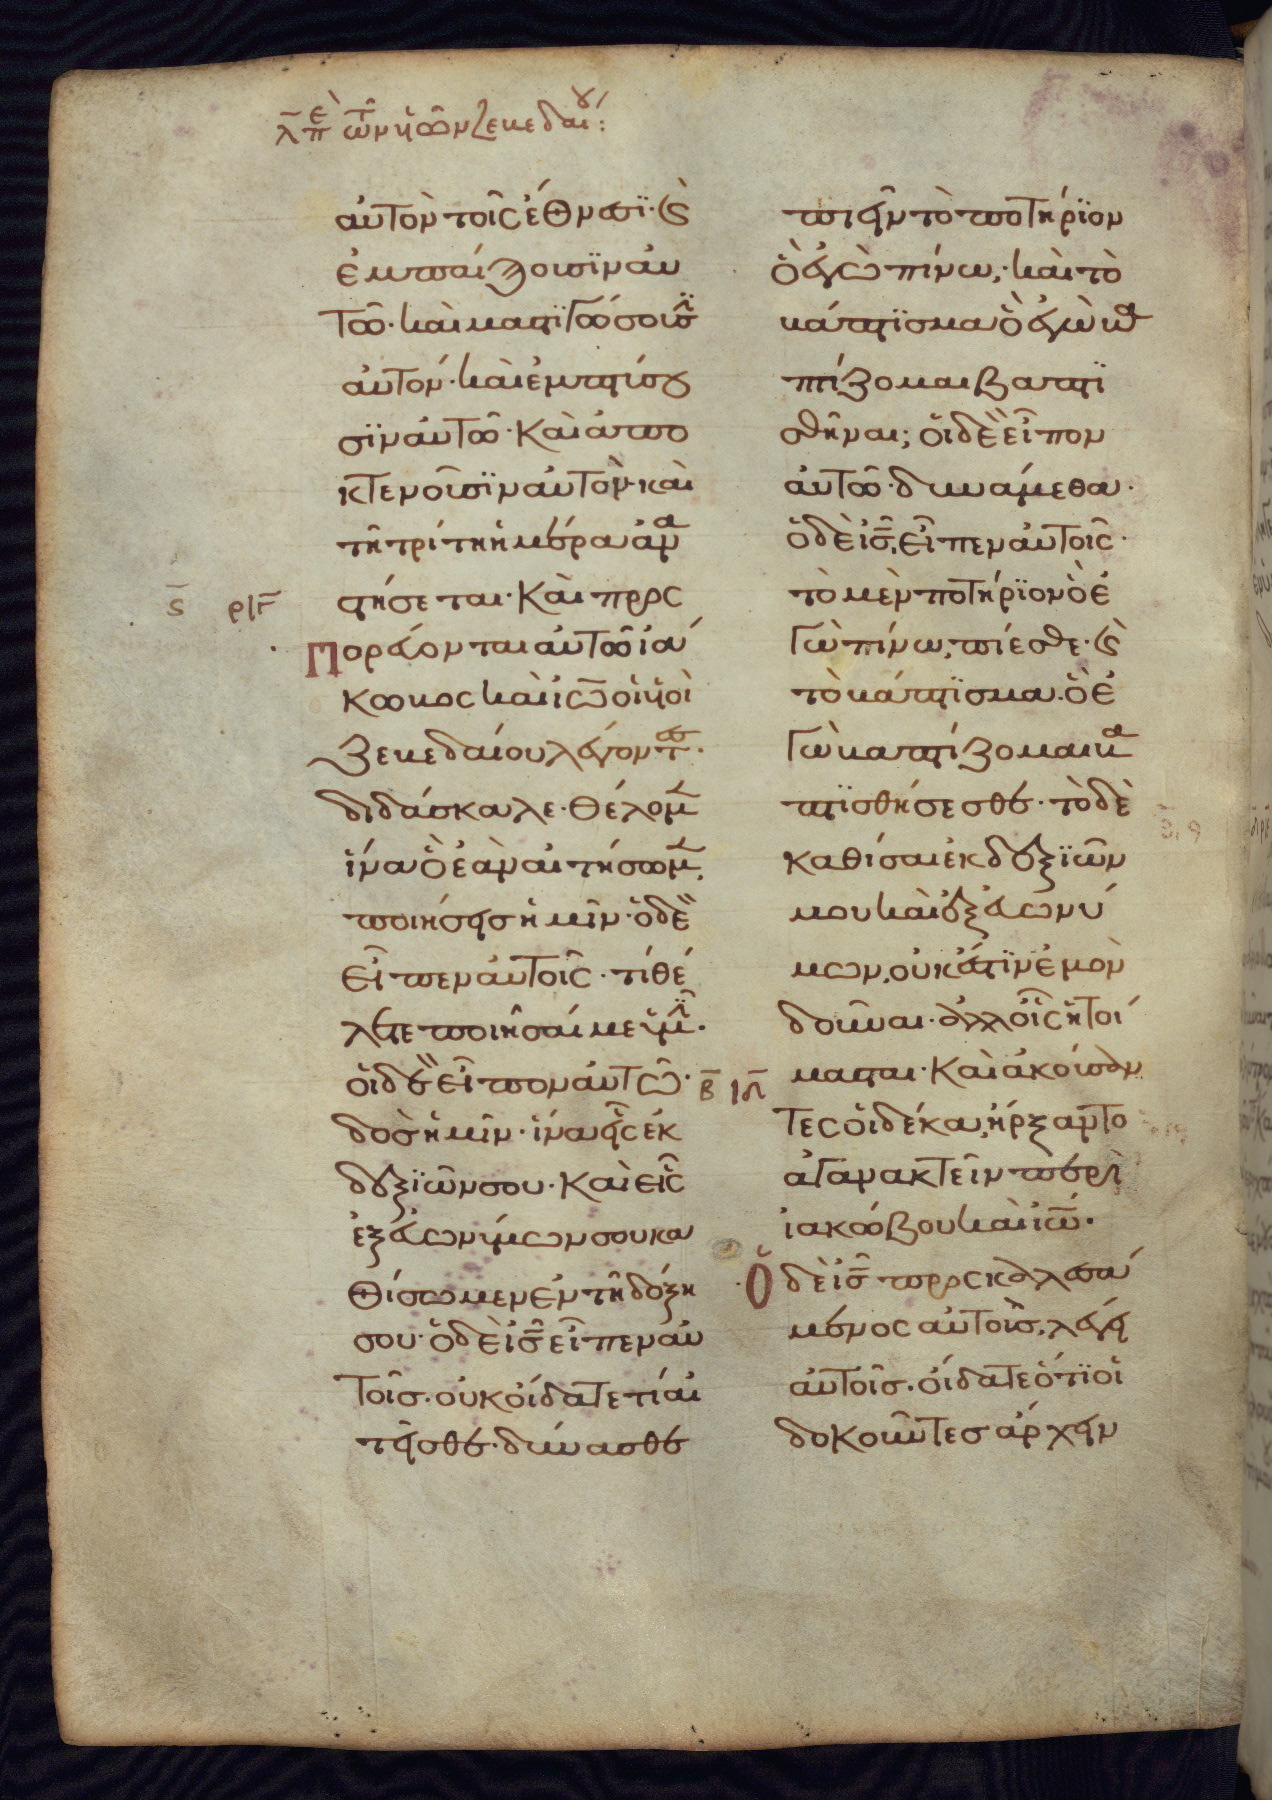 λ̅π̅ὲ τῶν ὑϊῶν ζεβεδαίου:
αὐτὸν τοῖς ἔθνεσϊ· (καὶ)
ἐμπαίξουσϊν αὐ
τῶ· καὶ μαστϊγώσουσϊ(ν)
αὐτόν· καὶ ἐμπτύσου
σϊν αὐτῶ· Καὶ ἀπο
κτενοῦσϊν αὐτὸν· καὶ
τῆ τρίτη ἡμέρα ἀνα
στήσεται· Καὶ προσ
ς̅ ρ̅ι̅γ̅
Πορεύονται αὐτῶ ἰά
κωβος καὶ ἰω̅ οἱ ὑϊοὶ
Ζεβεδαίου λέγοντες·
διδάσκαλε· θέλομεν
ἵνα ὃ ἐὰν αἰτήσωμεν,
ποιήσης ἡμῖν· ὁ δὲ
εἶπεν αὐτοῖς· τί θέ
λετε ποιῆσαί με ὑμῖν·
οἱ δὲ εἶπον αὐτῶ·
δὸς ἡμῖν· ἵνα εἷς ἐκ
δεξϊῶν σου· Καὶ εἷς
ἐξ εὐωνύμων σου κα
θίσωμεν ἐν τῆ δόξη
σου· ὁ δὲ ἰς̅ εἶπεν αὐ
τοῖς· οὐκ οἴδατε τί αἰ
τεῖσθε· δύνασθε
πιεῖν τὸ ποτήρϊον
ὃ ἐγὼ πίνω,· καὶ τὸ
βάπτϊσμα ὃ ἐγὼ βα
πτίζομαι βαπτϊ
σθῆναι; οἱ δὲ εἶπον
αὐτῶ· δυνάμεθα·
ὁ δὲ ἰς̅, εἶπεν αὐτοῖς·
τὸ μὲν ποτήρϊον ὃ ἐ
γὼ πίνω, πίεσθε· (καὶ)
τὸ βάπτϊσμα· ὃ ἐ
γὼ βαπτίζομαι βα
πτϊσθήσεσθε· τὸ δὲ
καθίσαι ἐκ δεξϊῶν
μου καὶ ἐξ εὐωνύ
μων, οὐκ ἔστϊν ἐμὸν
δοῦναι· ἀλλ' οἷς ἡτοί
μασται· Καὶ ἀκούσαν
β̅ ι̅δ̅
τες οἱ δέκα, ἤρξαντο
ἀγανακτεῖν περὶ
ἰακώβου καὶ ἰω̅·
Ὁ δὲ ἰς̅ προσκαλεσά
μενος αὐτοῖς, λέγει
αὐτοῖς· οἴδατε ὅτϊ οἱ
δοκοῦντες ἄρχειν